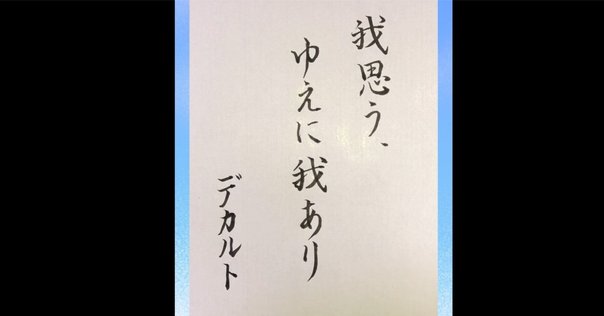 我思う、
ゆえに我あり
デカルト